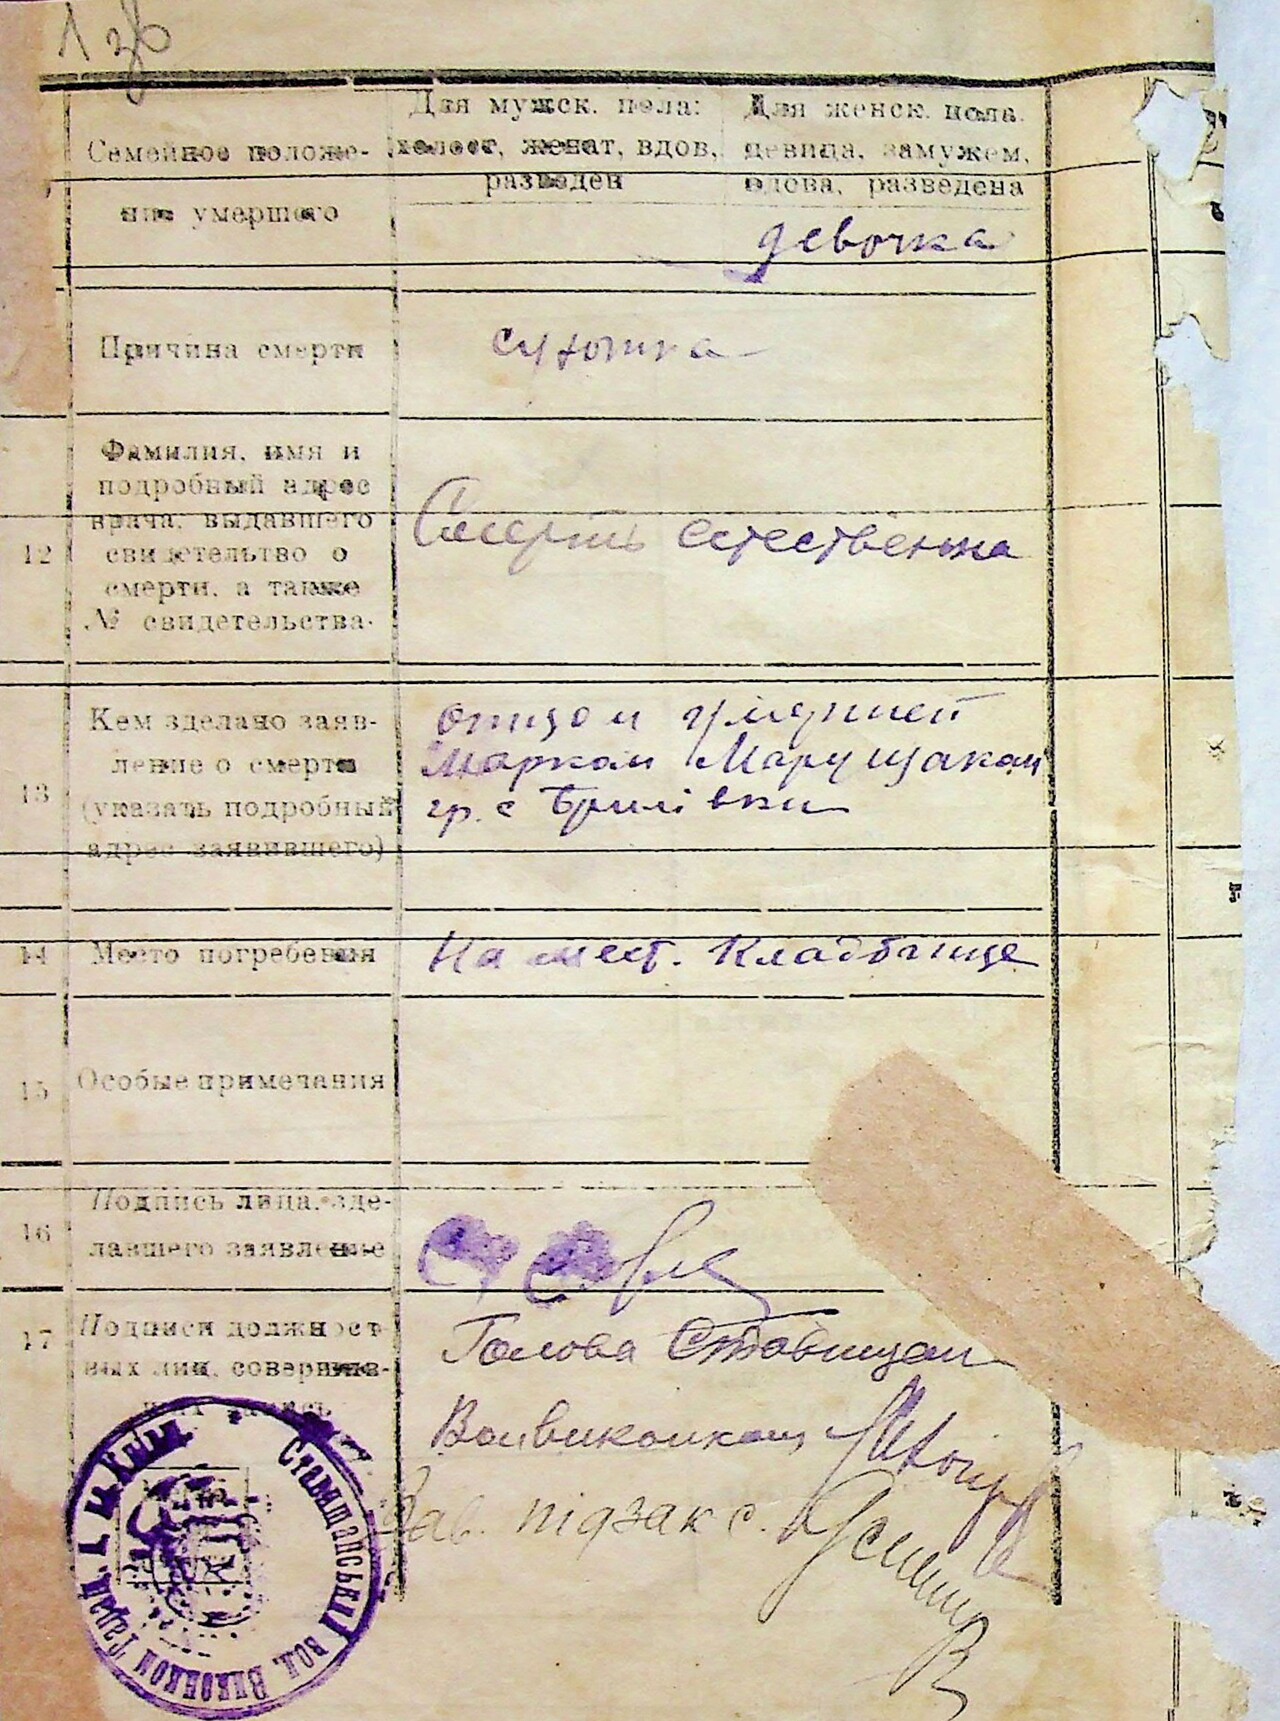 Семейное положе-
ние умершого
Для мужск. пола:
холост, женат, вдов,
разведен
Для женск. пола.
девица, замужем,
вдова, разведена
девочка
Причина смерти
12
Фамилия, имя и
подробный адрес
врача, выдавшего
свидетельство о
смерти, а также
№ свидетельства.
Смерть естественна
13
Кем зделано заяв-
ление о смерти
(указать подробный
адрес заявившего)
отцом умершей
Марком Марущаком
гр. с Брилівки
14
Место погребения
На мест. кладбище
15
Особые примечания
16
Подпись лица, зде-
лавшего заявление
17
Подписи должност-
ных лиц, совершив-
ших запись
Голова Ставищан
Волвиконком
Зав. підзакс.
Ставищанський вол. Виконком Таращ.